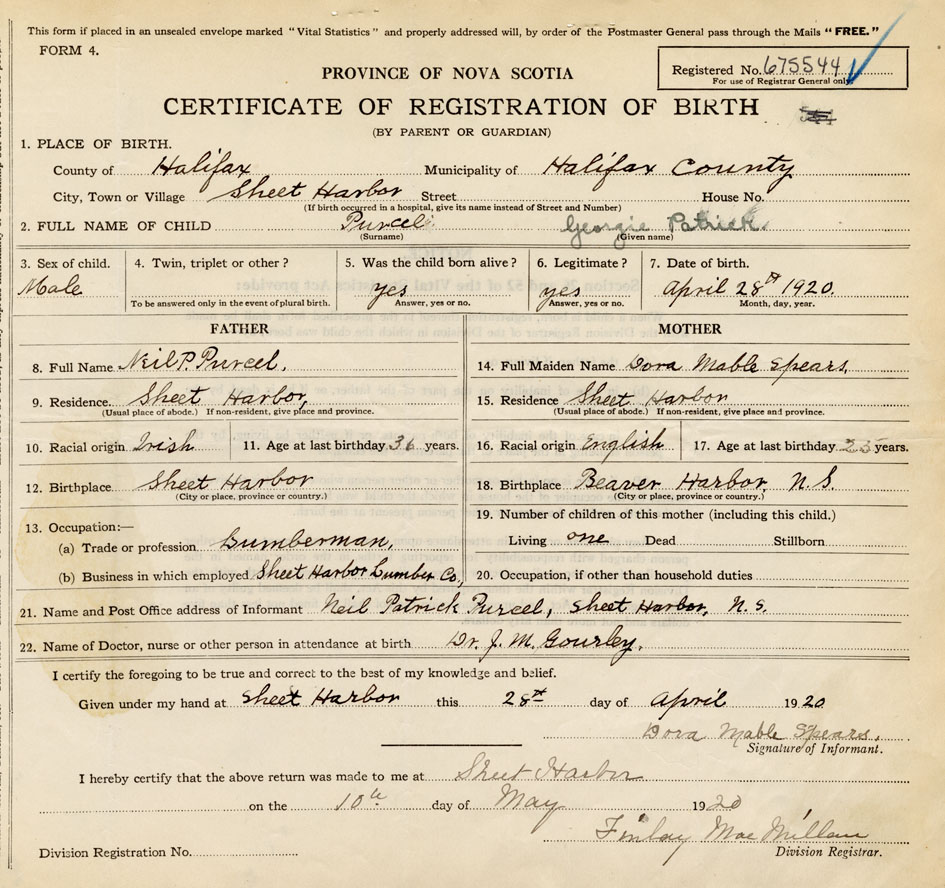 This form if placed in an unsealed envelope marked "Vital Statistics" and properly addressed will, by order of the Postmaster General pass through the Mails "FREE."
FORM 4.
Registered No. 675544
For use of Registrar General only.
PROVINCE OF NOVA SCOTIA
CERTIFICATE OF REGISTRATION OF BIRTH
(BY PARENT OR GUARDIAN)
1. PLACE OF BIRTH.
County of Halifax Municipality of Halifax County
City, Town or Village Sheet Harbor Street House No.
(If birth occurred in a hospital, give its name instead of Street and Number)
2. FULL NAME OF CHILD Purcel Georgie Patrick.
(Surname) (Given name)
3. Sex of child. 4. Twin, triplet or other? 5. Was the child born alive? 6. Legitimate? 7. Date of birth.
Male yes yes April 28th 1920.
To be answered only in the event of plural birth. Answer, yes or no. Answer, yes or no. Month, day, year.
FATHER MOTHER
8. Full Name Neil P. Purcel. 14. Full Maiden Name Dora Mable Spears.
9. Residence. Sheet Harbor, 15. Residence Sheet Harbor
(Usual place of abode.) If non-resident, give place and province. (Usual place of abode.) If non-resident, give place and province.
10. Racial origin Irish 11. Age at last birthday 36 years. 16. Racial origin English 17. Age at last birthday 25 years.
12. Birthplace Sheet Harbor 18. Birthplace Beaver Harbor, N.S.
(City or place, province or country.) (City or place, province or country.)
13. Occupation:— 19. Number of children of this mother (including this child.)
(a) Trade or profession Lumberman, Living one Dead Stillborn
(b) Business in which employed Sheet Harbor Lumber Co, 20. Occupation, if other than household duties
21. Name and Post Office address of Informant Neil Patrick Purcel, Sheet Harbor, N.S.
22. Name of Doctor, nurse or other person in attendance at birth Dr. J. M. Gourley.
I certify the foregoing to be true and correct to the best of my knowledge and belief.
Given under my hand at Sheet Harbor this 28th day of April 1920
Dora Mable Spears.
Signature of Informant.
I hereby certify that the above return was made to me at Sheet Harbor
on the 10th day of May 1920
Finlay MacMillan
Division Registration No. Division Registrar.